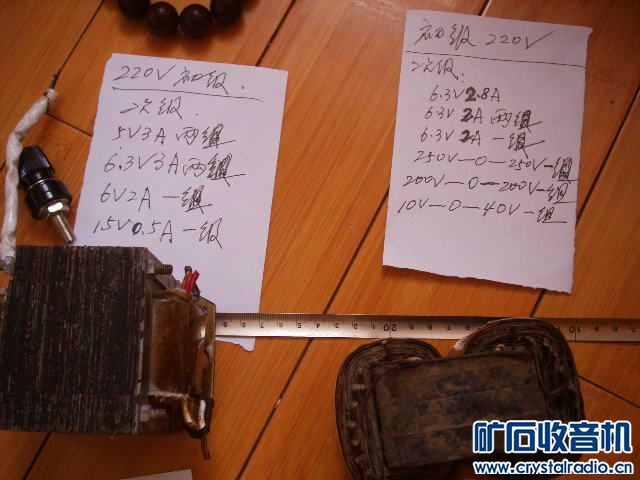 220V 初级.
二次级.
5V3A 两组
6.3V3A 两组
6V2A 一组
15V0.5A 一级
初级 220V
二次级:
6.3V 2.8A
6.3V 2A 两组
6.3V 2A 一组
250V—0—250V—组
200V—0—200V—组
10V—0—40V—组
20
10
矿石收音机
www.crystalradio.cn